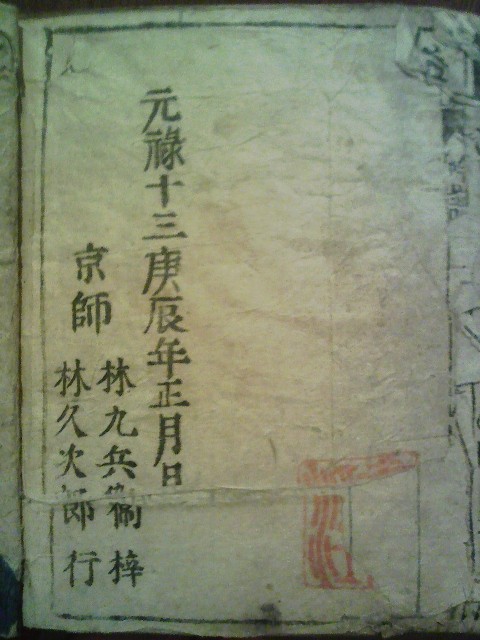 元祿十三庚辰年正月日
京師
林九兵衞 梓
林久次郎 行